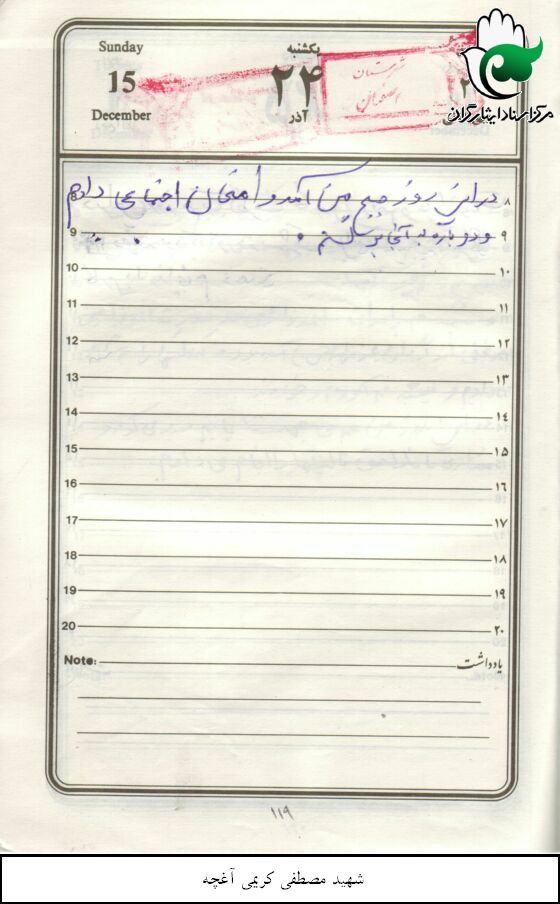 Sunday
15
December
یکشنبه
۲۴
آذر
شهرستان
اصفهان
مرکز اسناد ایثارگران
در این روز صبح من آمدم و امتحان اجتماعی دادم
و دوباره به آنجا برگشتم .
8 ۸
9 ۹
10 ۱۰
11 ۱۱
12 ۱۲
13 ۱۳
14 ۱۴
15 ۱۵
16 ۱۶
17 ۱۷
18 ۱۸
19 ۱۹
20 ۲۰
Note: یادداشت
۱۱۹
شهید مصطفی کریمی آغچه